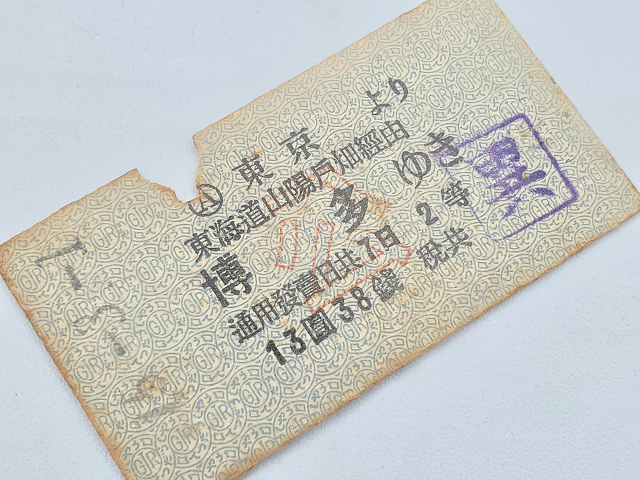 Ⓐ 東京より
東海道山陽戸畑經由
博多ゆき
通用發賣日共7日 2等
13圓38錢 税共